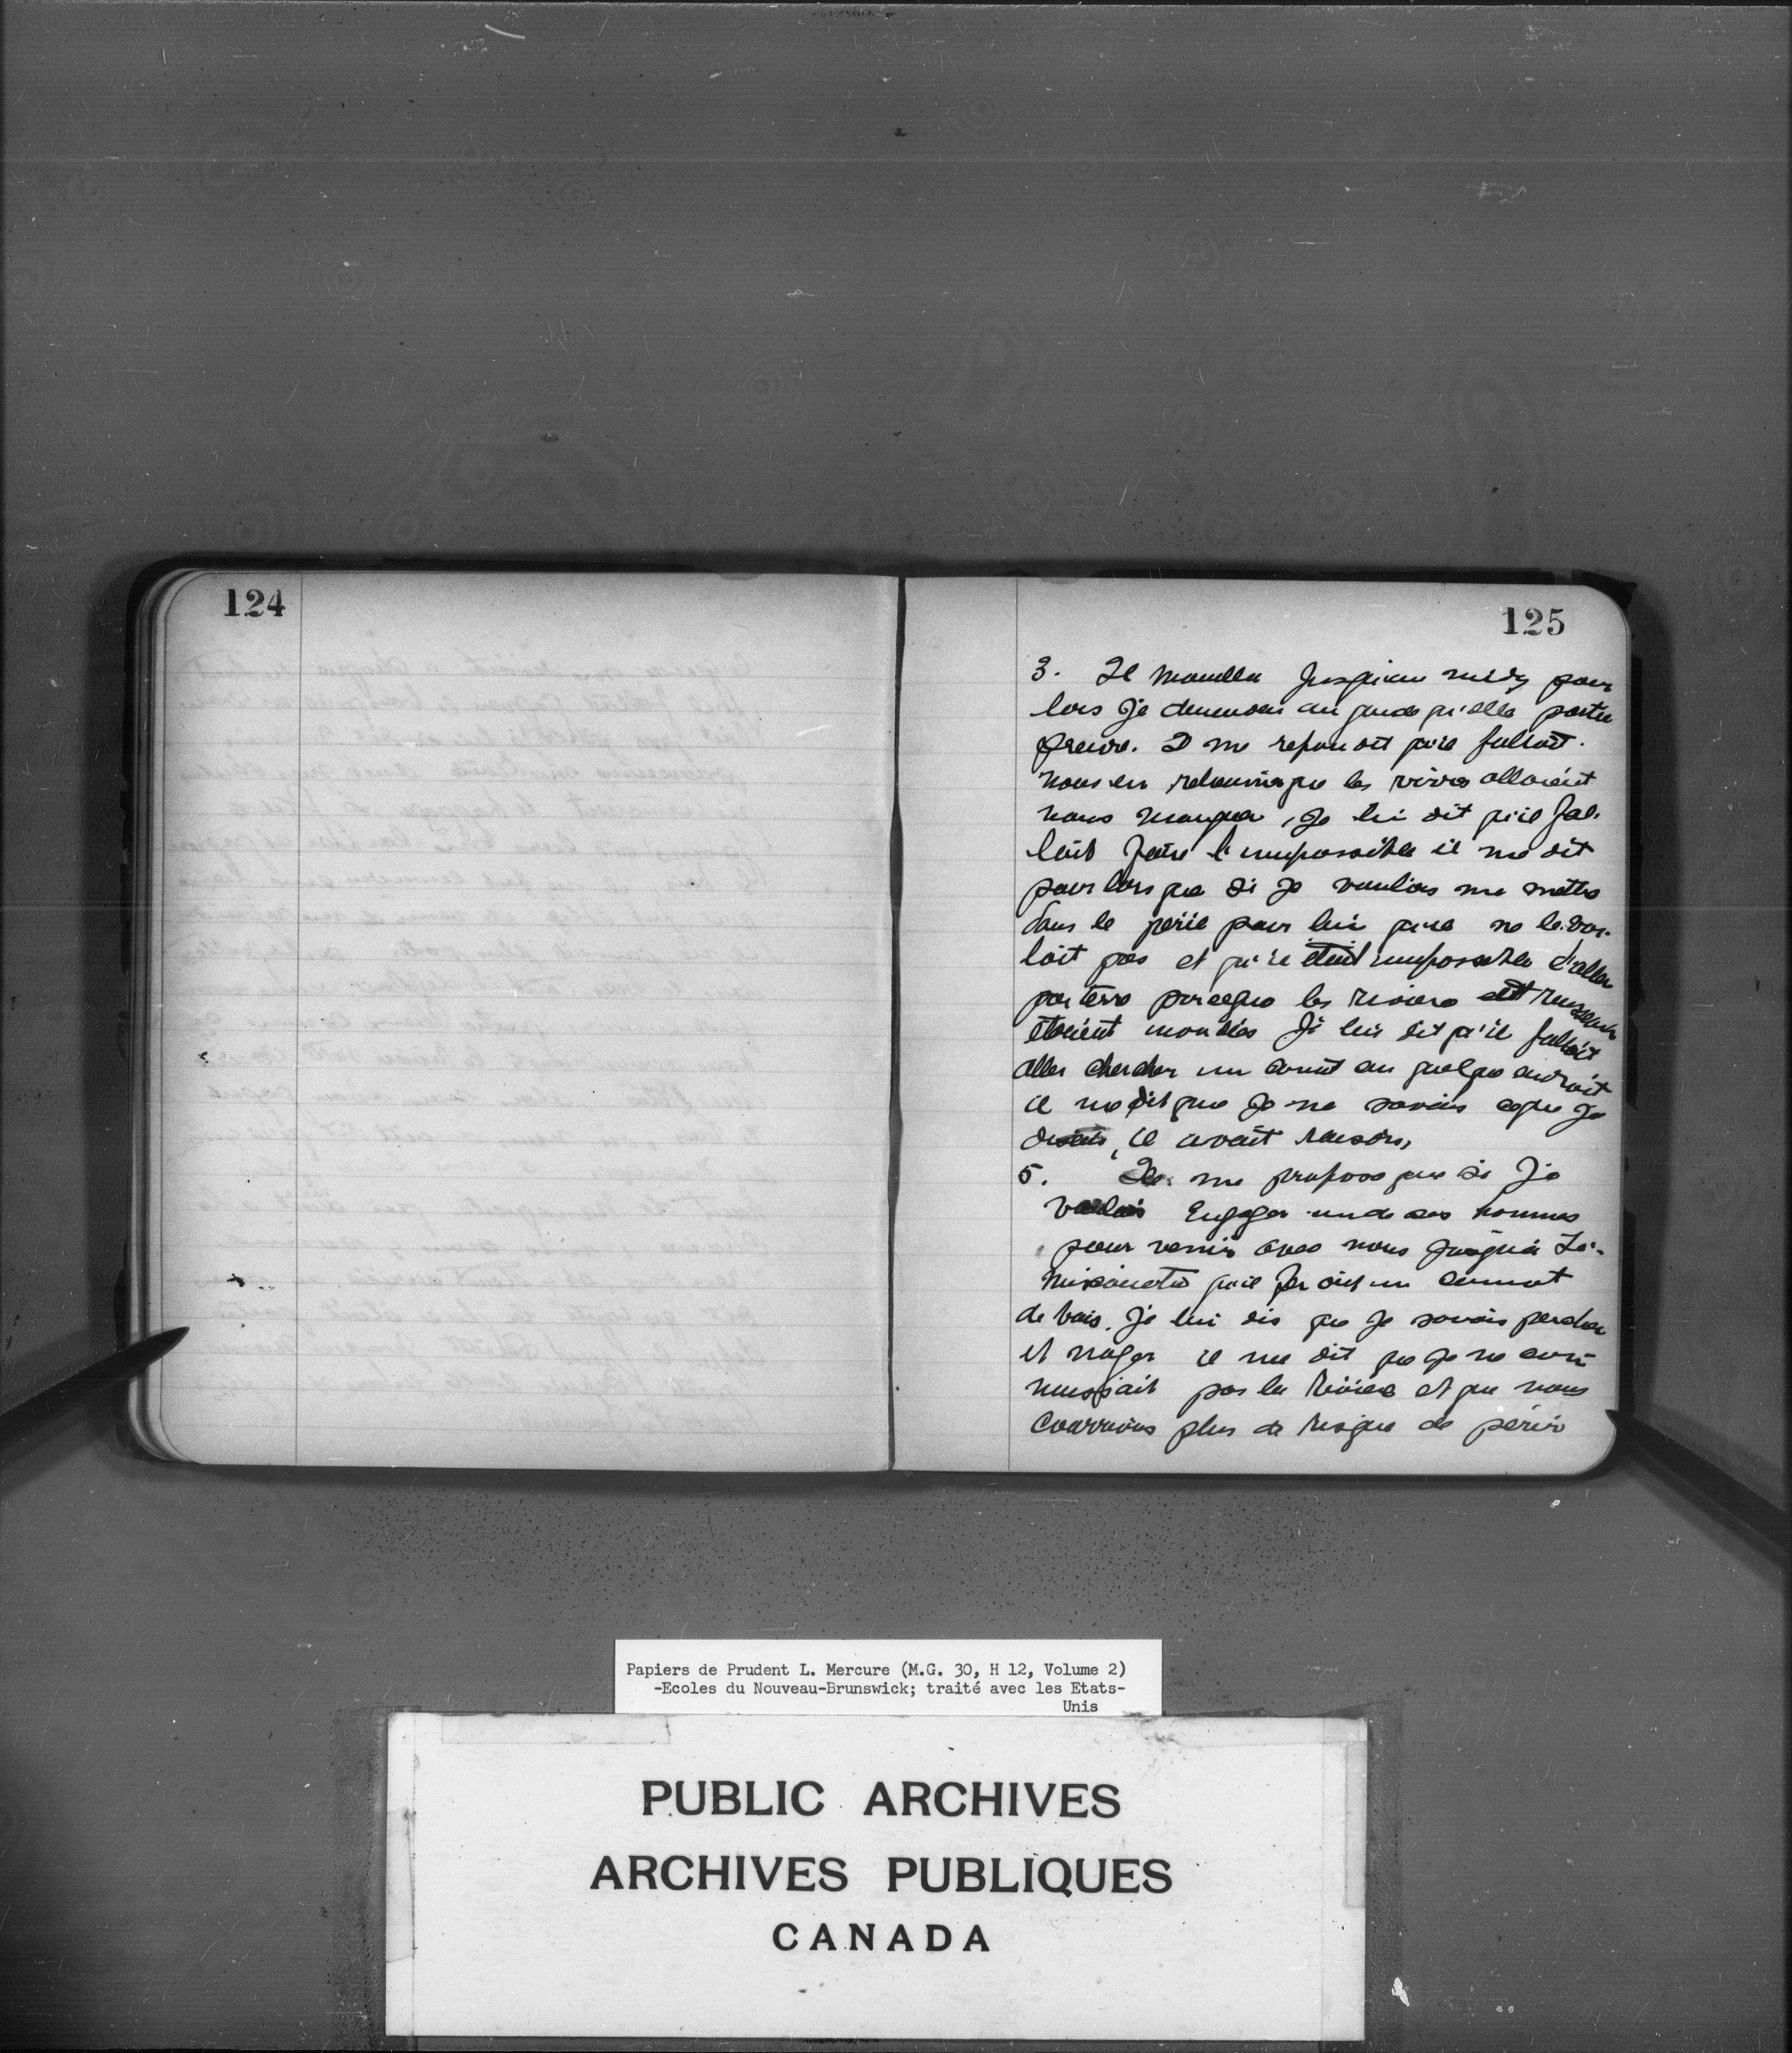 124
125
3. Il mouilla jusqu'au midy pour
lors je demendai au guide qu'elle partie
preuve. Il me repondit qu'il falloit
nous en retourner que les vivres alloient
nous manquer, je lui dit qu'il fal-
loit faire l'impossible il me dit
pour lors que si je voulois me mettre
dans le péril pour lui qu'il ne le vou-
loit pas et qu'il étoit impossible d'aller
par terre parceque les rivières et ruisseaux
étoient inondés je lui dit qu'il falloit
aller chercher un canot en quelque endroit
il me dit que je ne savois ce que je
disais, il avait raison,
5. Il me propose que si je
voulois Engager un de ses hommes
pour venir avec nous jusqu'à Te-
misouata qu'il feroit un cannot
de bois. Je lui dis que je savois percher
et nager il me dit que je ne con-
nussait pas la Rivière et que nous
courrions plus de risque de périr
Papiers de Prudent L. Mercure (M.G. 30, H 12, Volume 2)
-Ecoles du Nouveau-Brunswick; traité avec les Etats-
Unis
PUBLIC ARCHIVES
ARCHIVES PUBLIQUES
CANADA